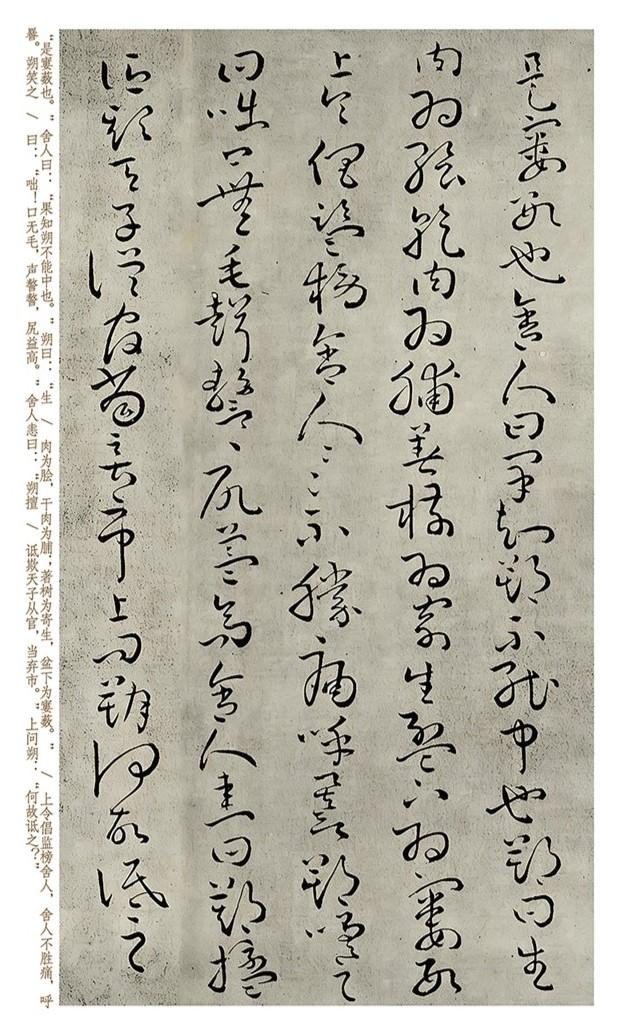 是窶數也舍人曰果知朔不能中也朔曰生
肉為膾乾肉為脯著樹為寄生盆下為窶數
上令倡監榜舍人〻不勝痛呼謈朔笑之
曰咄口無毛聲謷〻尻益高舍人恚曰朔擅
詆欺天子從官當棄市上問朔何故詆之
“是窭薮也。”舍人曰：“果知朔不能中也。”朔曰：“生 / 肉为脍，干肉为脯；著树为寄生，盆下为窭薮。” / 上令倡监榜舍人，舍人不胜痛，呼
謈。朔笑之 / 曰：“咄！口无毛，声謷謷，尻益高。”舍人恚曰：“朔擅 / 诋欺天子从官，当弃市。”上问朔：“何故诋之？”